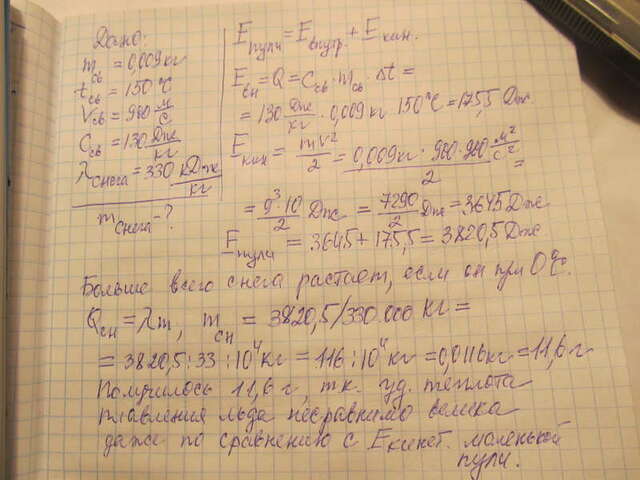 Дано:
m св = 0,009 кг
t св = 150 °C
V св = 900 м/с
C св = 130 Дж/кг
λ снега = 330 кДж/кг
m снега - ?
E пули = E внутр. + E кин.
E вн = Q = C св · m св · Δt =
= 130 Дж/кг · 0,009 кг · 150 °C = 175,5 Дж
E кин = mV²/2 = 0,009 кг · 900 · 900 м²/с² / 2 =
= 9³ · 10 / 2 Дж = 7290/2 Дж = 3645 Дж
E пули = 3645 + 175,5 = 3820,5 Дж
Больше всего снега растает, если он при 0 °C.
Q сн = λm, m сн = 3820,5/330.000 кг =
= 3820,5 : 33 : 10⁴ кг = 116 : 10⁴ кг = 0,0116 кг = 11,6 г
Получилось 11,6 г, т.к. уд. теплота
плавления льда несравнимо велика
даже по сравнению с E кинет. маленькой
пули.